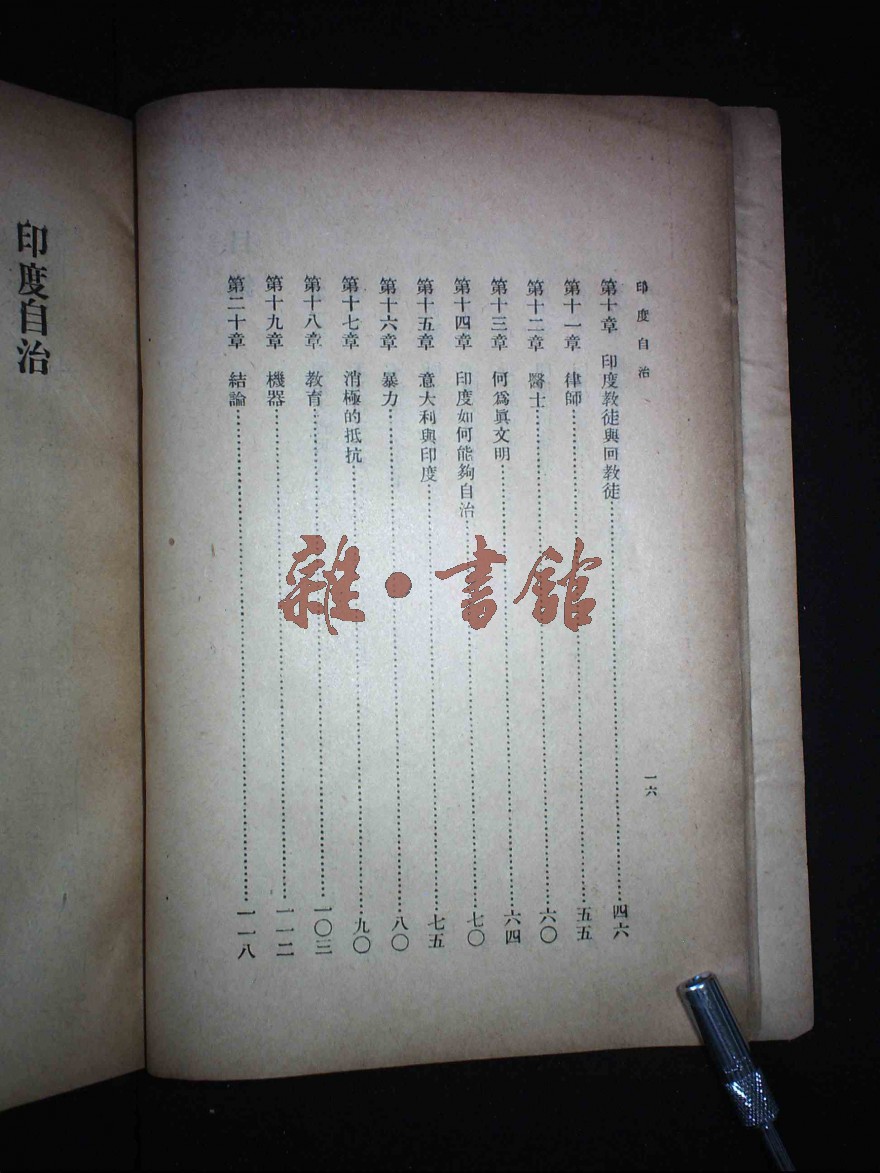 印度自治
一六
第十章 印度教徒與回教徒……四六
第十一章 律師……五五
第十二章 醫士……六〇
第十三章 何爲眞文明……六四
第十四章 印度如何能夠自治……七〇
第十五章 意大利與印度……七五
第十六章 暴力……八〇
第十七章 消極的抵抗……九〇
第十八章 教育……一〇三
第十九章 機器……一一二
第二十章 結論……一一八
印度自治
雜·書館